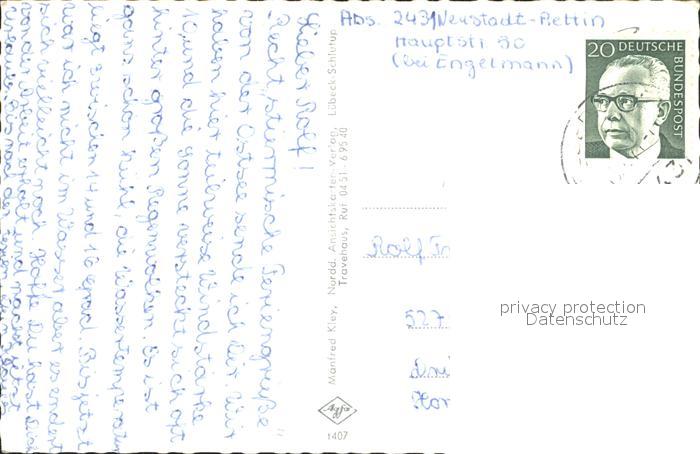 Lieber Rolf!
Recht „stürmische Feriengrüße"
von der Ostsee sende ich Dir. Wir
haben hier teilweise Windstärke
10, und die Sonne versteckt sich oft
hinter großen Regenwolken. Es ist
ganz schön kühl, die Wassertemperatur
liegt zwischen 14 und 16 Grad. Bis jetzt
war ich nicht im Wasser, aber es ändert
sich vielleicht noch. Hoffe Du hast Dich
von der Arbeit erholt und machst jetzt
Manfred Kley, Nordd. Ansichtskarten-Verlag, Lübeck-Schlutup
Travehaus, Ruf 04 51 - 6 95 40
Agfa
1407
Abs. 243 Neustadt-Rettin
Hauptstr. 30
(bei Engelmann)
20 DEUTSCHE
BUNDESPOST
Rolf
527
privacy protection
Datenschutz